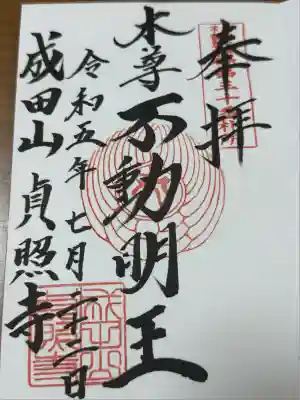 奉拝
本尊 不動明王
令和五年七月二十二日
成田山 貞照寺